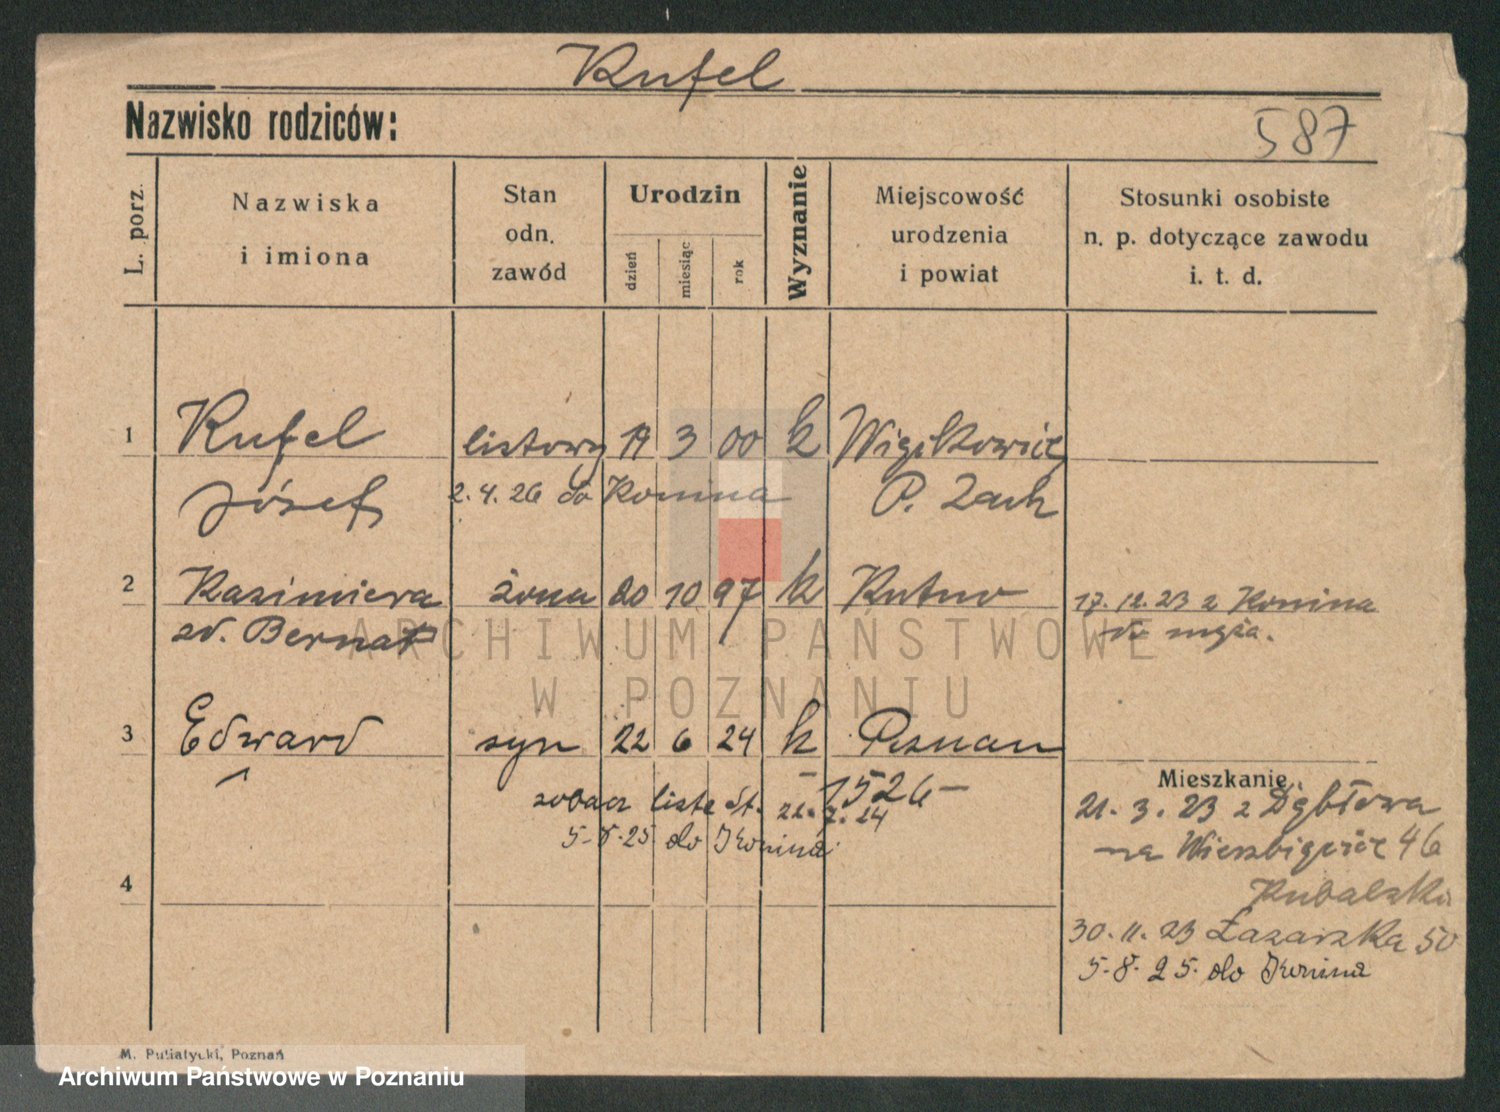 Kufel
Nazwisko rodziców:
587
L. porz.
Nazwiska
i imiona
Stan
odn.
zawód
Urodzin
dzień
miesiąc
rok
Wyznanie
Miejscowość
urodzenia
i powiat
Stosunki osobiste
n. p. dotyczące zawodu
i. t. d.
1 Kufel listowy 19 3 00 k
Józef 2.4.26 do Konina P.
2 Kazimiera żona 20 10 97 k Kutno 17.12.23 z Konina
zd. Bernat do męża.
3 Edward syn 22 6 24 k Poznań
Mieszkanie
zobacz liste St. 22.7.24 1526-
5-8-25 do Konina
21.3.23 z
na Wierzbięcice 46
30.11.23 Łazarska 50
5-8-25. do Konina
4
M. Putiatycki, Poznań
ARCHIWUM PAŃSTWOWE
W POZNANIU
Archiwum Państwowe w Poznaniu